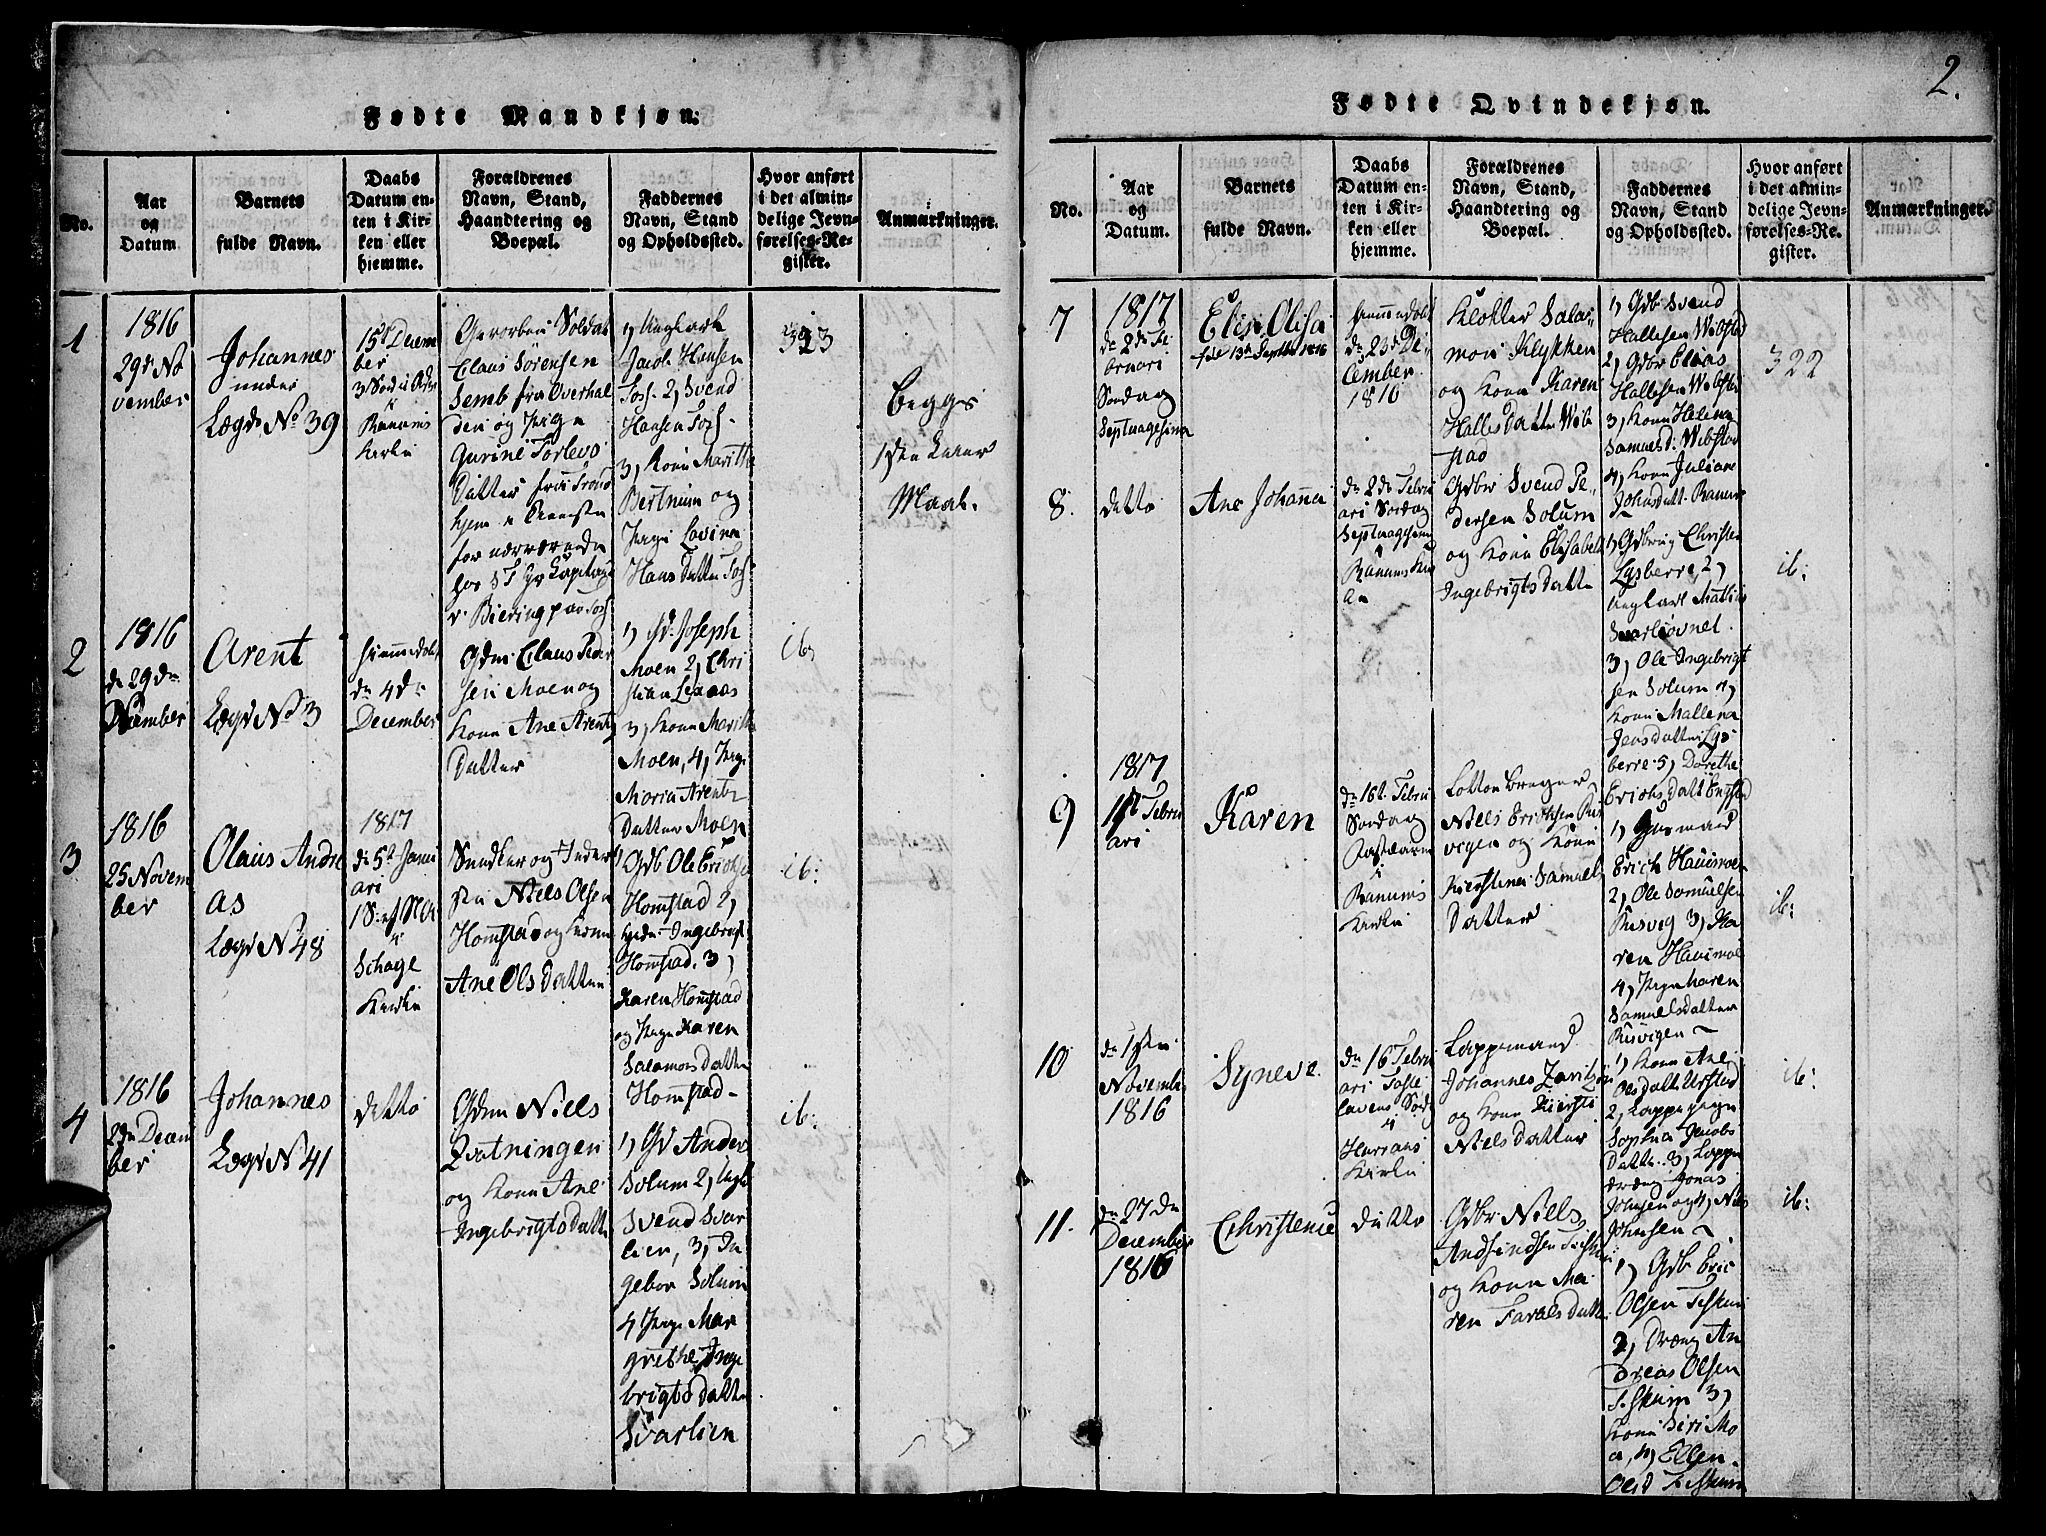 2.
Fødte Mandkjøn.
No.
Aar
og
Datum
Barnets
fulde Navn.
Daabs
Datum en-
ten i Kir-
ken eller
hjemme.
Forældrenes
Navn, Stand,
Haandtering og
Boepæl.
Faddernes
Navn, Stand
og Opholdssted.
Hvor anført
i det almin-
delige Jevn-
førelses-Re-
gister.
Anmærkninger.
1
1816
29d No
vember
Johannes
under
Lægds No 39
15de Decem
ber
Ranums
Kirke
Soldat
Claus Sörensen
Semb fra Overhal
den og Pige
Gurine Torlevs
Datter fra Trond
hjem
for nærværende
Jacob Hansen
2, Svend
Hansen
3, Kone Marithe
Bertnum og
Pige Lavina
Hans Datter
323
Begges
1ste Leier
Maal.
2
1816
d 29de
December
Arent
Lægd No 3
hiemmedøbt
dn 4de
December
Gdm: Claus Peder
sen Moen og
Kone Ane Arentz
Datter
1, Gd: Joseph
Moen 2, Chri
stian
3, Kone Marithe
Moen, 4, Pige
Maria Arentz
Datter Moen
ib
3
1816
25 Novem
ber
Olaus Andre
as
Lægd No 48
1817
d: 5te Janu
ari
Schage
Kirke
Niels Olsen
Homstad og Kone
Ane Ols Datter
Gdb Ole Erichsen
Homstad 2,
Ingebrigt
Homstad. 3,
Karen Homstad
og Pige Karen
Salamons Datter
Homstad-
ib:
4
1816
2dn Decem
ber
Johannes
Lægd No 41
detto
Gdm Niels
Qvatningen
og Kone Ane
Ingebrigts Datter
1, Gd Anders
Solum 2,
Svend Svar
lien, 3, In
gebor Solum
4 Pige Mar
grethe Inge
brigts Datter
Svarlien
ib:
Fødte Qvindekjøn.
No.
Aar
og
Datum.
Barnets
fulde Navn.
Daabs
Datum en-
ten i Kir-
ken eller
hjemme.
Forældrenes
Navn, Stand,
Haandtering og
Boepæl.
Faddernes
Navn, Stand
og Opholdssted.
Hvor anført
i det almin-
delige Jevn-
førelses-Re-
gister.
Anmærkninger.
7
1817
de 2de Fe
bruari
Søndag
Septuagesima
Elen Olisa
hiemmedøbt
dn 23d De
cember
1816
Klokker Salo-
mon Klykken
og Kone Karen
Halles Datter Web
stad
1, Gdb: Svend
Hallesen Webstad
2, Gdbr Claas
Hallesen Webstad
3, Kone Helena
Samuelsd: Webstad
4, Kone Juliane
322
8.
detto
Ane Johanna
dn 2dn Febru
ari Søndag
Septuagesima
Gdbr Svend Pe
dersen Solum
og Kone Elisabeth
Ingebrigts Datter
1, Gdbrug Christen
Lysberre, 2,
Ungkarl Mathias
3, Ole Ingebrigt
sen Solum 4,
Kone Mallena
Jensdatter Lys
berre 5, Dorethe
Erichs Datt
ib:
9
1817
Febru
ari
Karen
dn 16t. Febru
Søndag
Ranums
Kirke
Niels Erichsen Rus
vigen og Kone
Kierstine Samuels
Datter
1, Huusmand
Erich Hauimoe
2, Ole Samuelsen
Rusvig 3, Ka
ren Hauimoe
4, Pige Maren
Samuelsdatter
Rusvigen ~
ib:
10
dn 1ste
Novemb
1816
Syneve
dn 16 Febru
ari Faste
lavens Sønd
Harrans
Kirke
Lappemand
Johannes Zaritzen
og Kone Kiersti
Niels Datter
1, Kone Ane
Olsdatt Urstad
2, Lappepige
Sophia Jacobs
Datter 3, Lappe
dreng Jonas
Johnsen og 4, Niels
Johnsen ~
ib:
11.
dn 27dn
December
1816
Christence
ditto
Gdbr Niels
og Kone Ma
ren Faraels Datter
1, Gdb Eric
Olsen
2, Dreng An
dreas Olsen
3,
Kone Siri Mo
a, 4, Ellen
Olsd
ib: